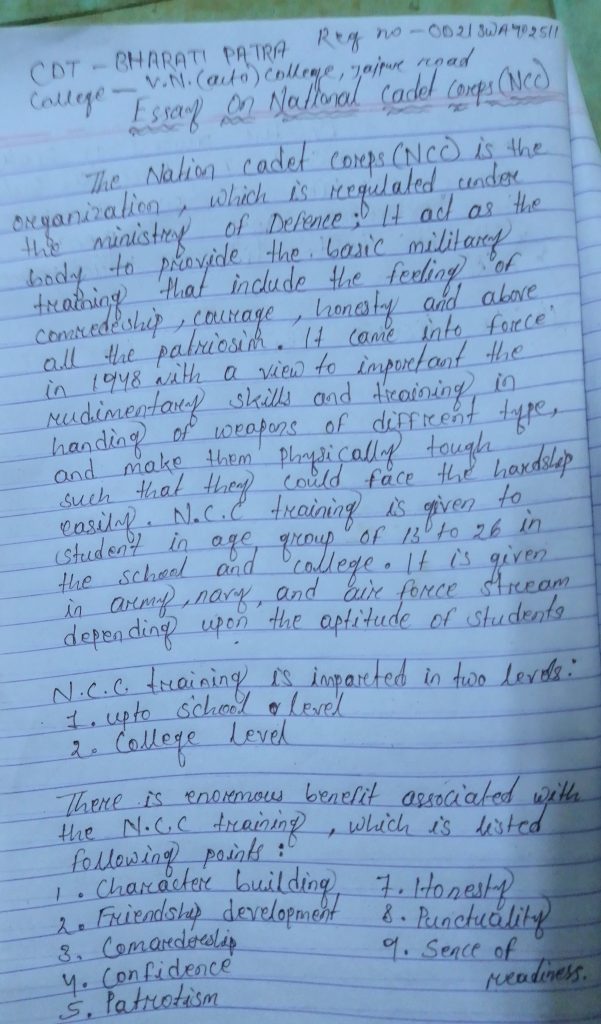 CDT - BHARATI PATRA Reg no - OD21SWA402511
College - V.N. (auto) college, Jajpur road
Essay On National cadet coreps (NCC)
The Nation cadet coreps (NCC) is the
organization, which is regulated under
the ministrey of Defence; It act as the
body to provide the basic military
training that include the feeling of
comredeship, courage, honesty and above
all the patriosim. It came into force
in 1948 with a view to important the
rudimentary skills and training in
handing of weapons of diffrent type,
and make them physically tough
such that they could face the hardship
easily. N.C.C training is given to
student in age group of 13 to 26 in
the school and college. It is given
in army, navy, and air force stream
depending upon the aptitude of students
N.C.C. training is imparted in two levels:
1. upto school level
2. College level
There is enormous benefit associated with
the N.C.C training, which is listed
following points:
1. Character building 7. Honesty
2. Friendship development 8. Punctuality
3. Comaredeship 9. Sence of
4. Confidence readiness.
5. Patriotism